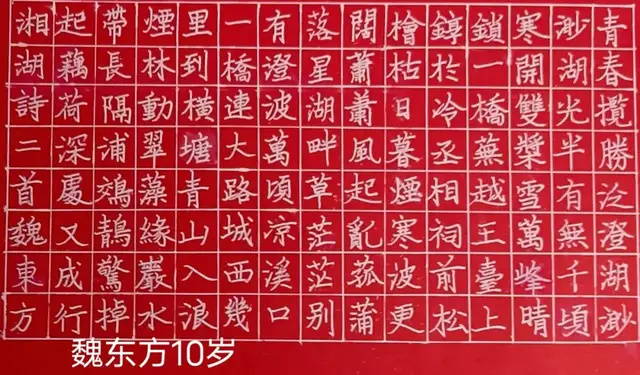 青春攬勝泛澄湖渺
渺湖光半有無千頃
寒開雙槳雪萬峰晴
鎖一橋蕪越王臺上
錞於冷丞相祠前松
檜枯日暮煙寒波更
闊蕭蕭風起亂菰蒲
落星湖畔草茫茫別
有澄波萬頃涼溪口
一橋連大路城西幾
里到橫塘青山入浪
煙林動翠藻緣巖水
帶長隔浦鵁鶄驚掉
起藕荷深處又成行
湘湖詩二首魏東方
魏东方10岁